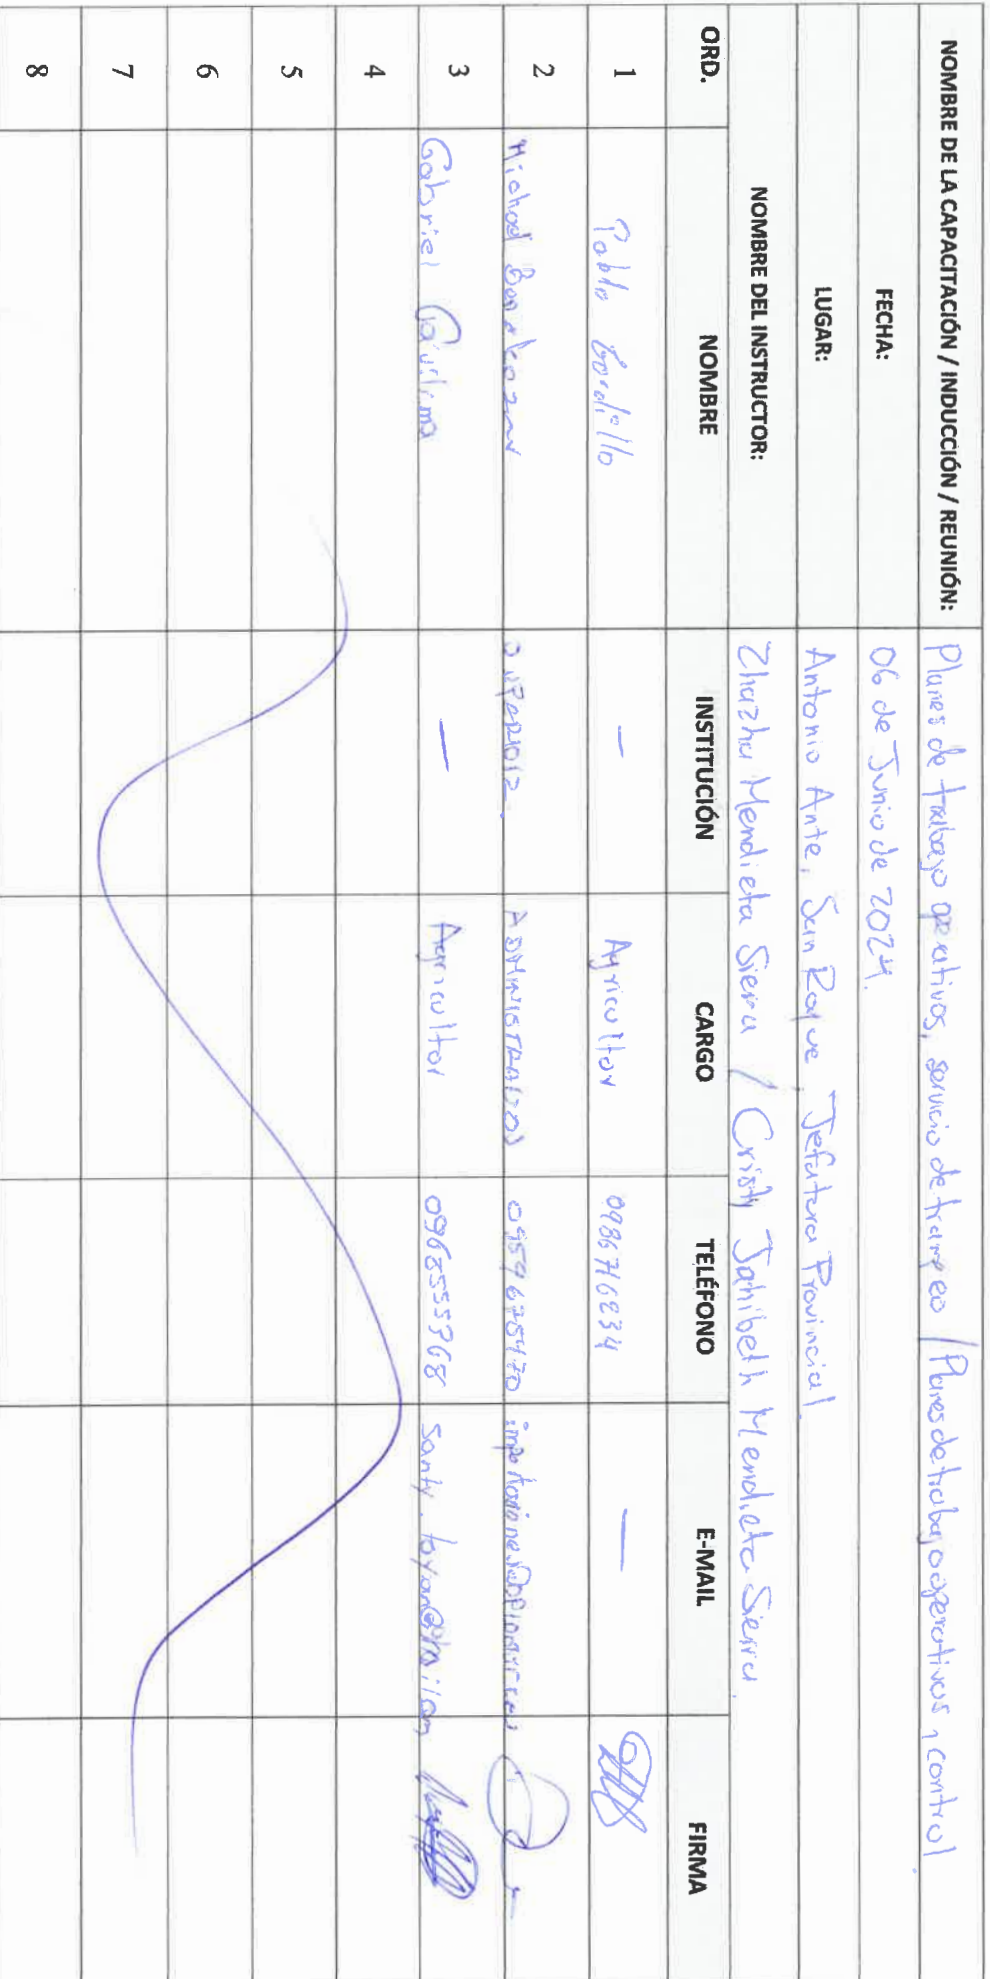 NOMBRE DE LA CAPACITACIÓN / INDUCCIÓN / REUNIÓN: Planes de trabajo operativos, servicio de trampeo / Planes de trabajo operativos, control
FECHA: 06 de Junio de 2024.
LUGAR: Antonio Ante, San Roque, Jefatura Provincial.
NOMBRE DEL INSTRUCTOR: Zhazha Mendieta Sierra / Cristy Jahibeth Mendieta Sierra.
ORD. NOMBRE INSTITUCIÓN CARGO TELÉFONO E-MAIL FIRMA
1 Pablo Gordillo — Agricultor 0986716234 —
2 Michael
3 Gabriel — Agricultor
4
5
6
7
8